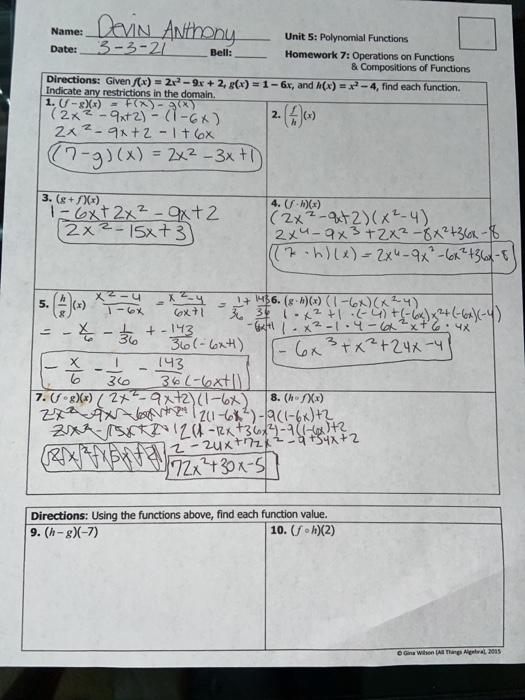 Name: Devin Anthony
Date: 3-3-21 Bell:
Unit 5: Polynomial Functions
Homework 7: Operations on Functions
& Compositions of Functions
Directions: Given f(x) = 2x² – 9x + 2, g(x) = 1 – 6x, and h(x) = x² – 4, find each function.
Indicate any restrictions in the domain.
1. (f – g)(x) = f(x) - g(x)
(2x² - 9x+2) - (1-6x)
2x² - 9x+2 -1+6x
(7-g)(x) = 2x² -3x+1
2. (f/h)(x)
3. (g + f)(x)
1-6x+2x² -9x+2
2x² -15x+3
4. (f · h)(x)
(2x²-9x+2)(x²-4)
2x⁴-9x³+2x²-8x²+36x-8
(7·h)(x) = 2x⁴-9x³-6x²+36x-8
5. (h/g)(x) x²-4/1-6x = x²-4/6x+1
= - x/6 - 1/36 + -143/36(-6x+1)
- x/6 - 1/36 - 143/36(-6x+1)
6. (g · h)(x) (1-6x)(x²-4)
1·x²+1·(-4)+(-6x)x²+(-6x)(-4)
1·x²-1·4-6x²x+6·4x
-6x³+x²+24x-4
7. (f ∘ g)(x) (2x²-9x+2)(1-6x)
2(1-6x²)-9(1-6x)+2
2(1-12x+36x²)-9(1-6x)+2
2-24x+72x²-9+54x+2
72x²+30x-5
8. (h ∘ f)(x)
Directions: Using the functions above, find each function value.
9. (h – g)(–7)
10. (f ∘ h)(2)
© Gina Wilson (All Things Algebra), 2015